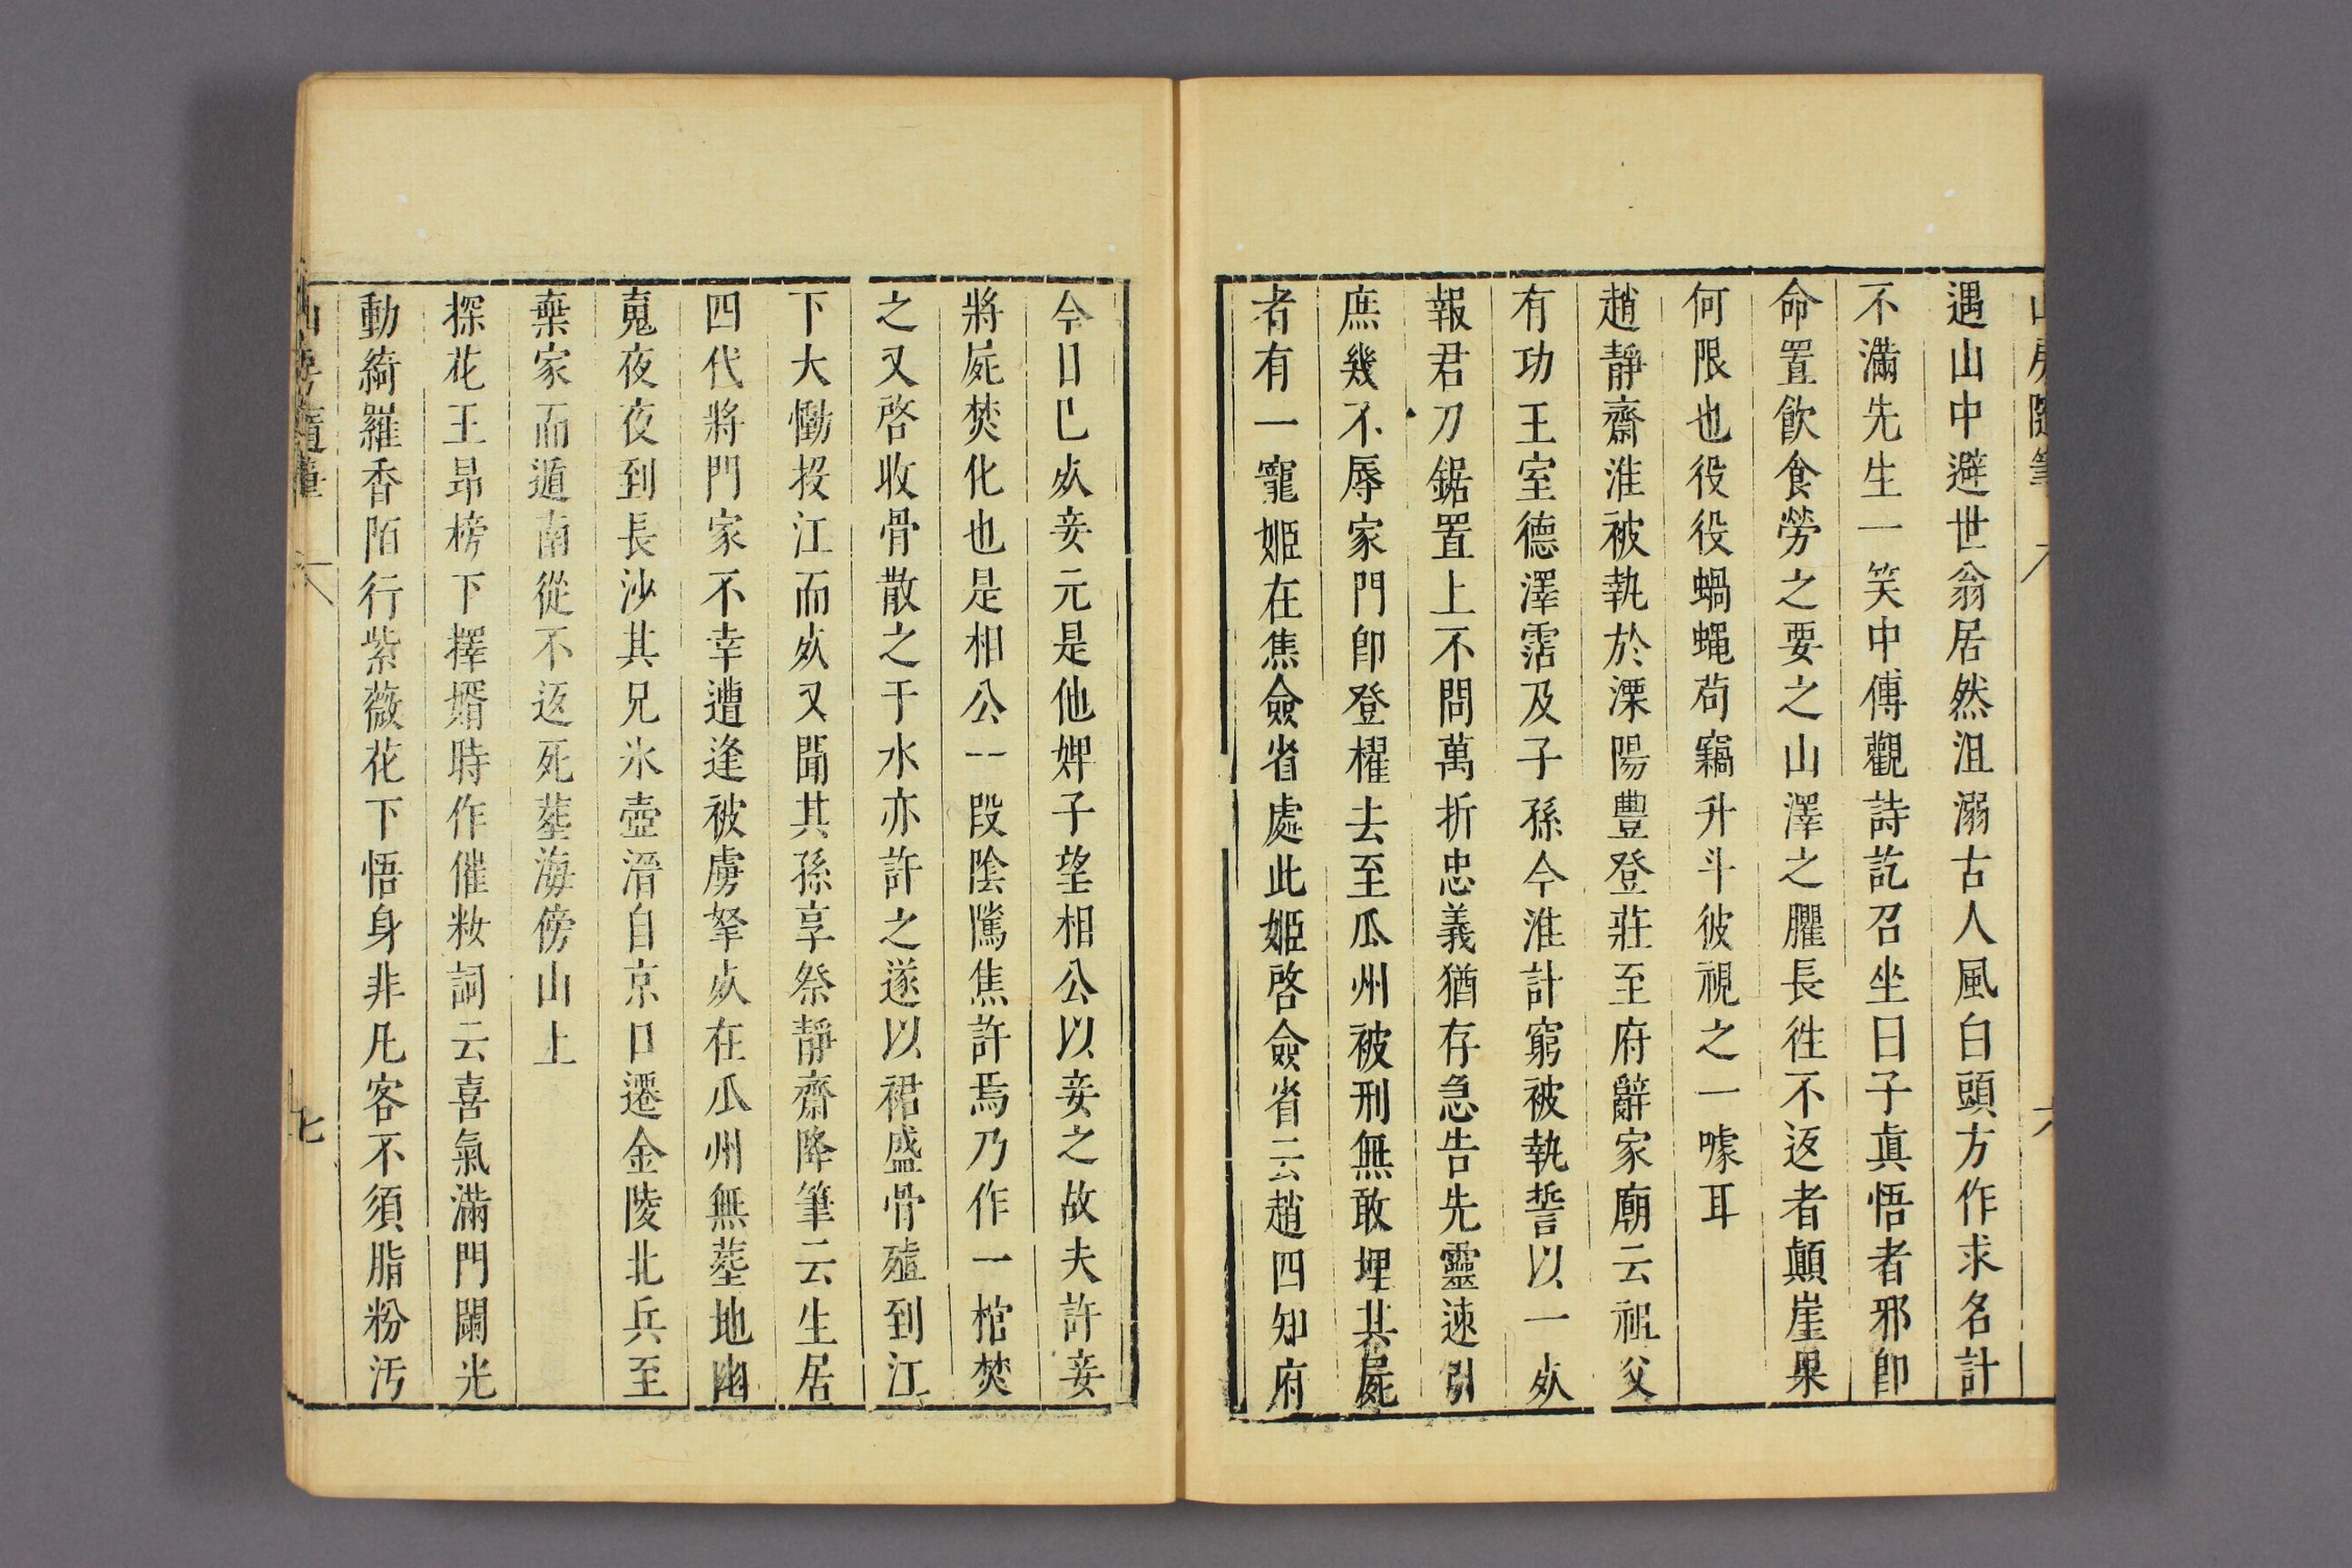 山房隨筆 六
遇山中避世翁居然沮溺古人風白頭方作求名計
不滿先生一笑中傳觀詩訖召坐曰子真悟者邪卽
命置飲食勞之要之山澤之臞長徃不返者顛崖果
何限也役役蝸蠅苟竊升斗彼視之一噱耳
趙靜齋淮被執於溧陽豐登莊至府辭家廟云祖父
有功王室德澤霑及子孫今淮計窮被執誓以一㱁
報君刀鋸置上不問萬折忠義猶存急告先靈速引
庶幾不辱家門卽登櫂去至瓜州被刑無敢埋其屍
者有一寵姬在焦僉省處此姬啓僉省云趙四知府
今日已㱁妾元是他婢子望相公以妾之故夫許妾
將屍焚化也是相公一段陰隲焦許焉乃作一棺焚
之又啓收骨散之于水亦許之遂以裙盛骨殖到江
下大慟投江而㱁又聞其孫享祭靜齋降筆云生居
四代將門家不幸遭逢被虜拏㱁在瓜州無塟地幽
䰟夜夜到長沙其兄氷壺溍自京口遷金陵北兵至
棄家而遁南從不返死塟海傍山上
探花王昻榜下擇婿時作催妝詞云喜氣滿門闌光
動綺羅香陌行紫薇花下悟身非凡客不須脂粉汚
山房隨筆 七